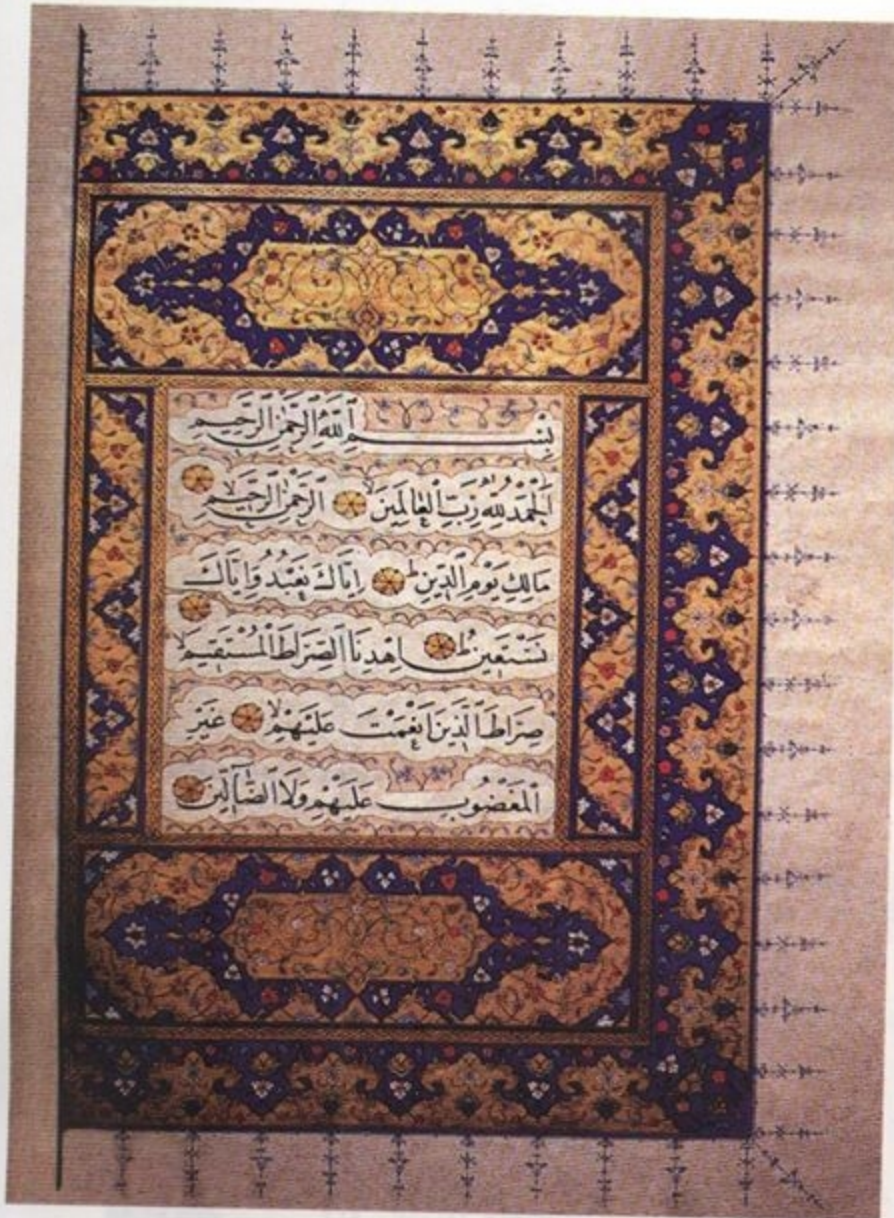 بِسْمِ ٱللّٰهِ ٱلرَّحْمٰنِ ٱلرَّحِيمِ
اَلْحَمْدُ لِلّٰهِ رَبِّ ٱلْعَالَمِينَ ۙ ٱلرَّحْمٰنِ ٱلرَّحِيمِ ۙ
مَالِكِ يَوْمِ ٱلدِّينِ ۗ اِيَّاكَ نَعْبُدُ وَاِيَّاكَ
نَسْتَعِينُ ۗ اِهْدِنَا ٱلصِّرَاطَ ٱلْمُسْتَقِيمَ ۙ
صِرَاطَ ٱلَّذِينَ اَنْعَمْتَ عَلَيْهِمْ ۙ غَيْرِ
ٱلْمَغْضُوبِ عَلَيْهِمْ وَلَا ٱلضَّٓالِّينَ